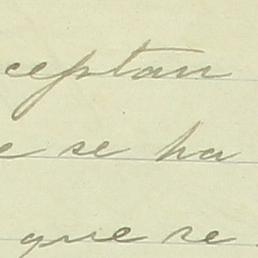 ceptan
e se ha
que se